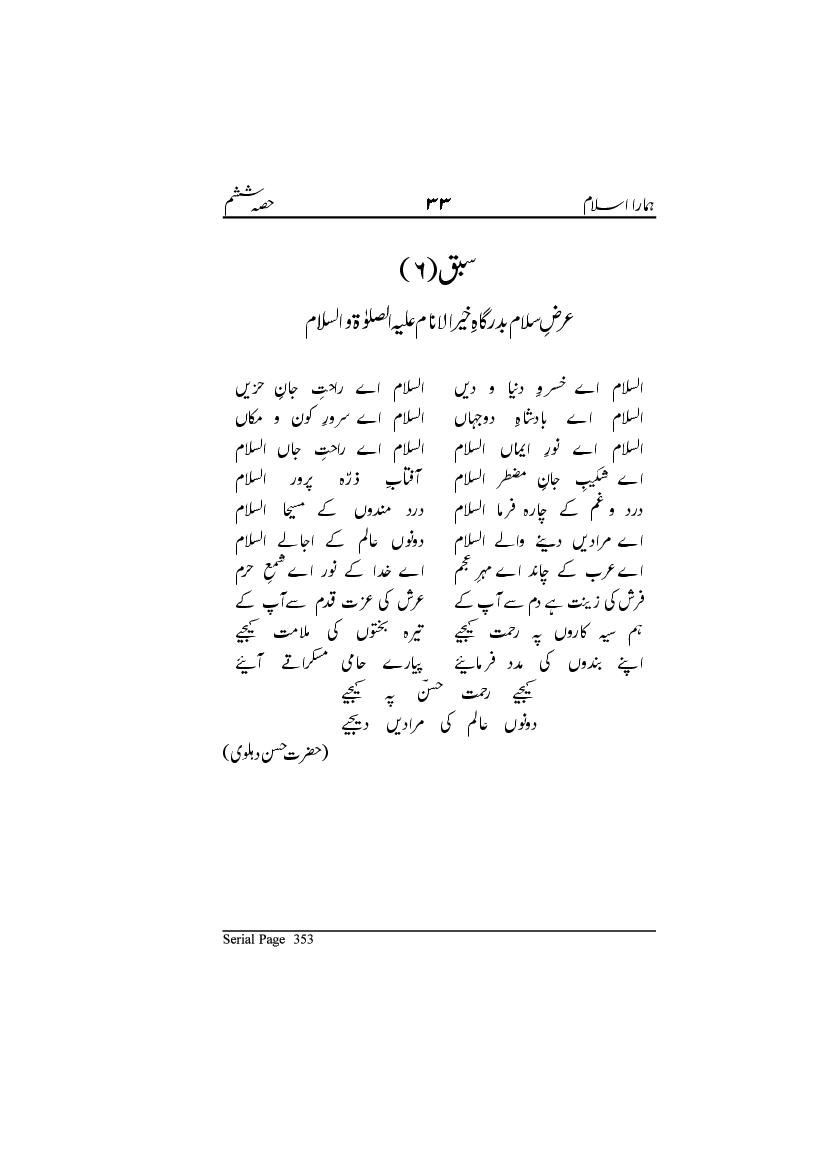 ہمارا اسلام ۳۳ حصہ ششم
سبق (٦)
عرضِ سلام بدرگاہِ خیر الانام علیہ الصلوٰۃ والسلام
السلام اے خسروِ دنیا و دیں السلام اے راحتِ جانِ حزیں
السلام اے بادشاہِ دوجہاں السلام اے سرورِ کون و مکاں
السلام اے نورِ ایماں السلام السلام اے راحتِ جاں السلام
اے شکیبِ جانِ مضطر السلام آفتابِ ذرّہ پرور السلام
درد و غم کے چارہ فرما السلام درد مندوں کے مسیحا السلام
اے مرادیں دینے والے السلام دونوں عالم کے اجالے السلام
اے عرب کے چاند اے مہرِ عجم اے خدا کے نور اے شمعِ حرم
فرش کی زینت ہے دم سے آپ کے عرش کی عزت قدم سے آپ کے
ہم سیہ کاروں پہ رحمت کیجیے تیرہ بختوں کی ملامت کیجیے
اپنے بندوں کی مدد فرمائیے پیارے حامی مسکراتے آئیے
کیجیے رحمت حسنؔ پہ کیجیے
دونوں عالم کی مرادیں دیجیے
(حضرت حسن دہلوی)
Serial Page 353